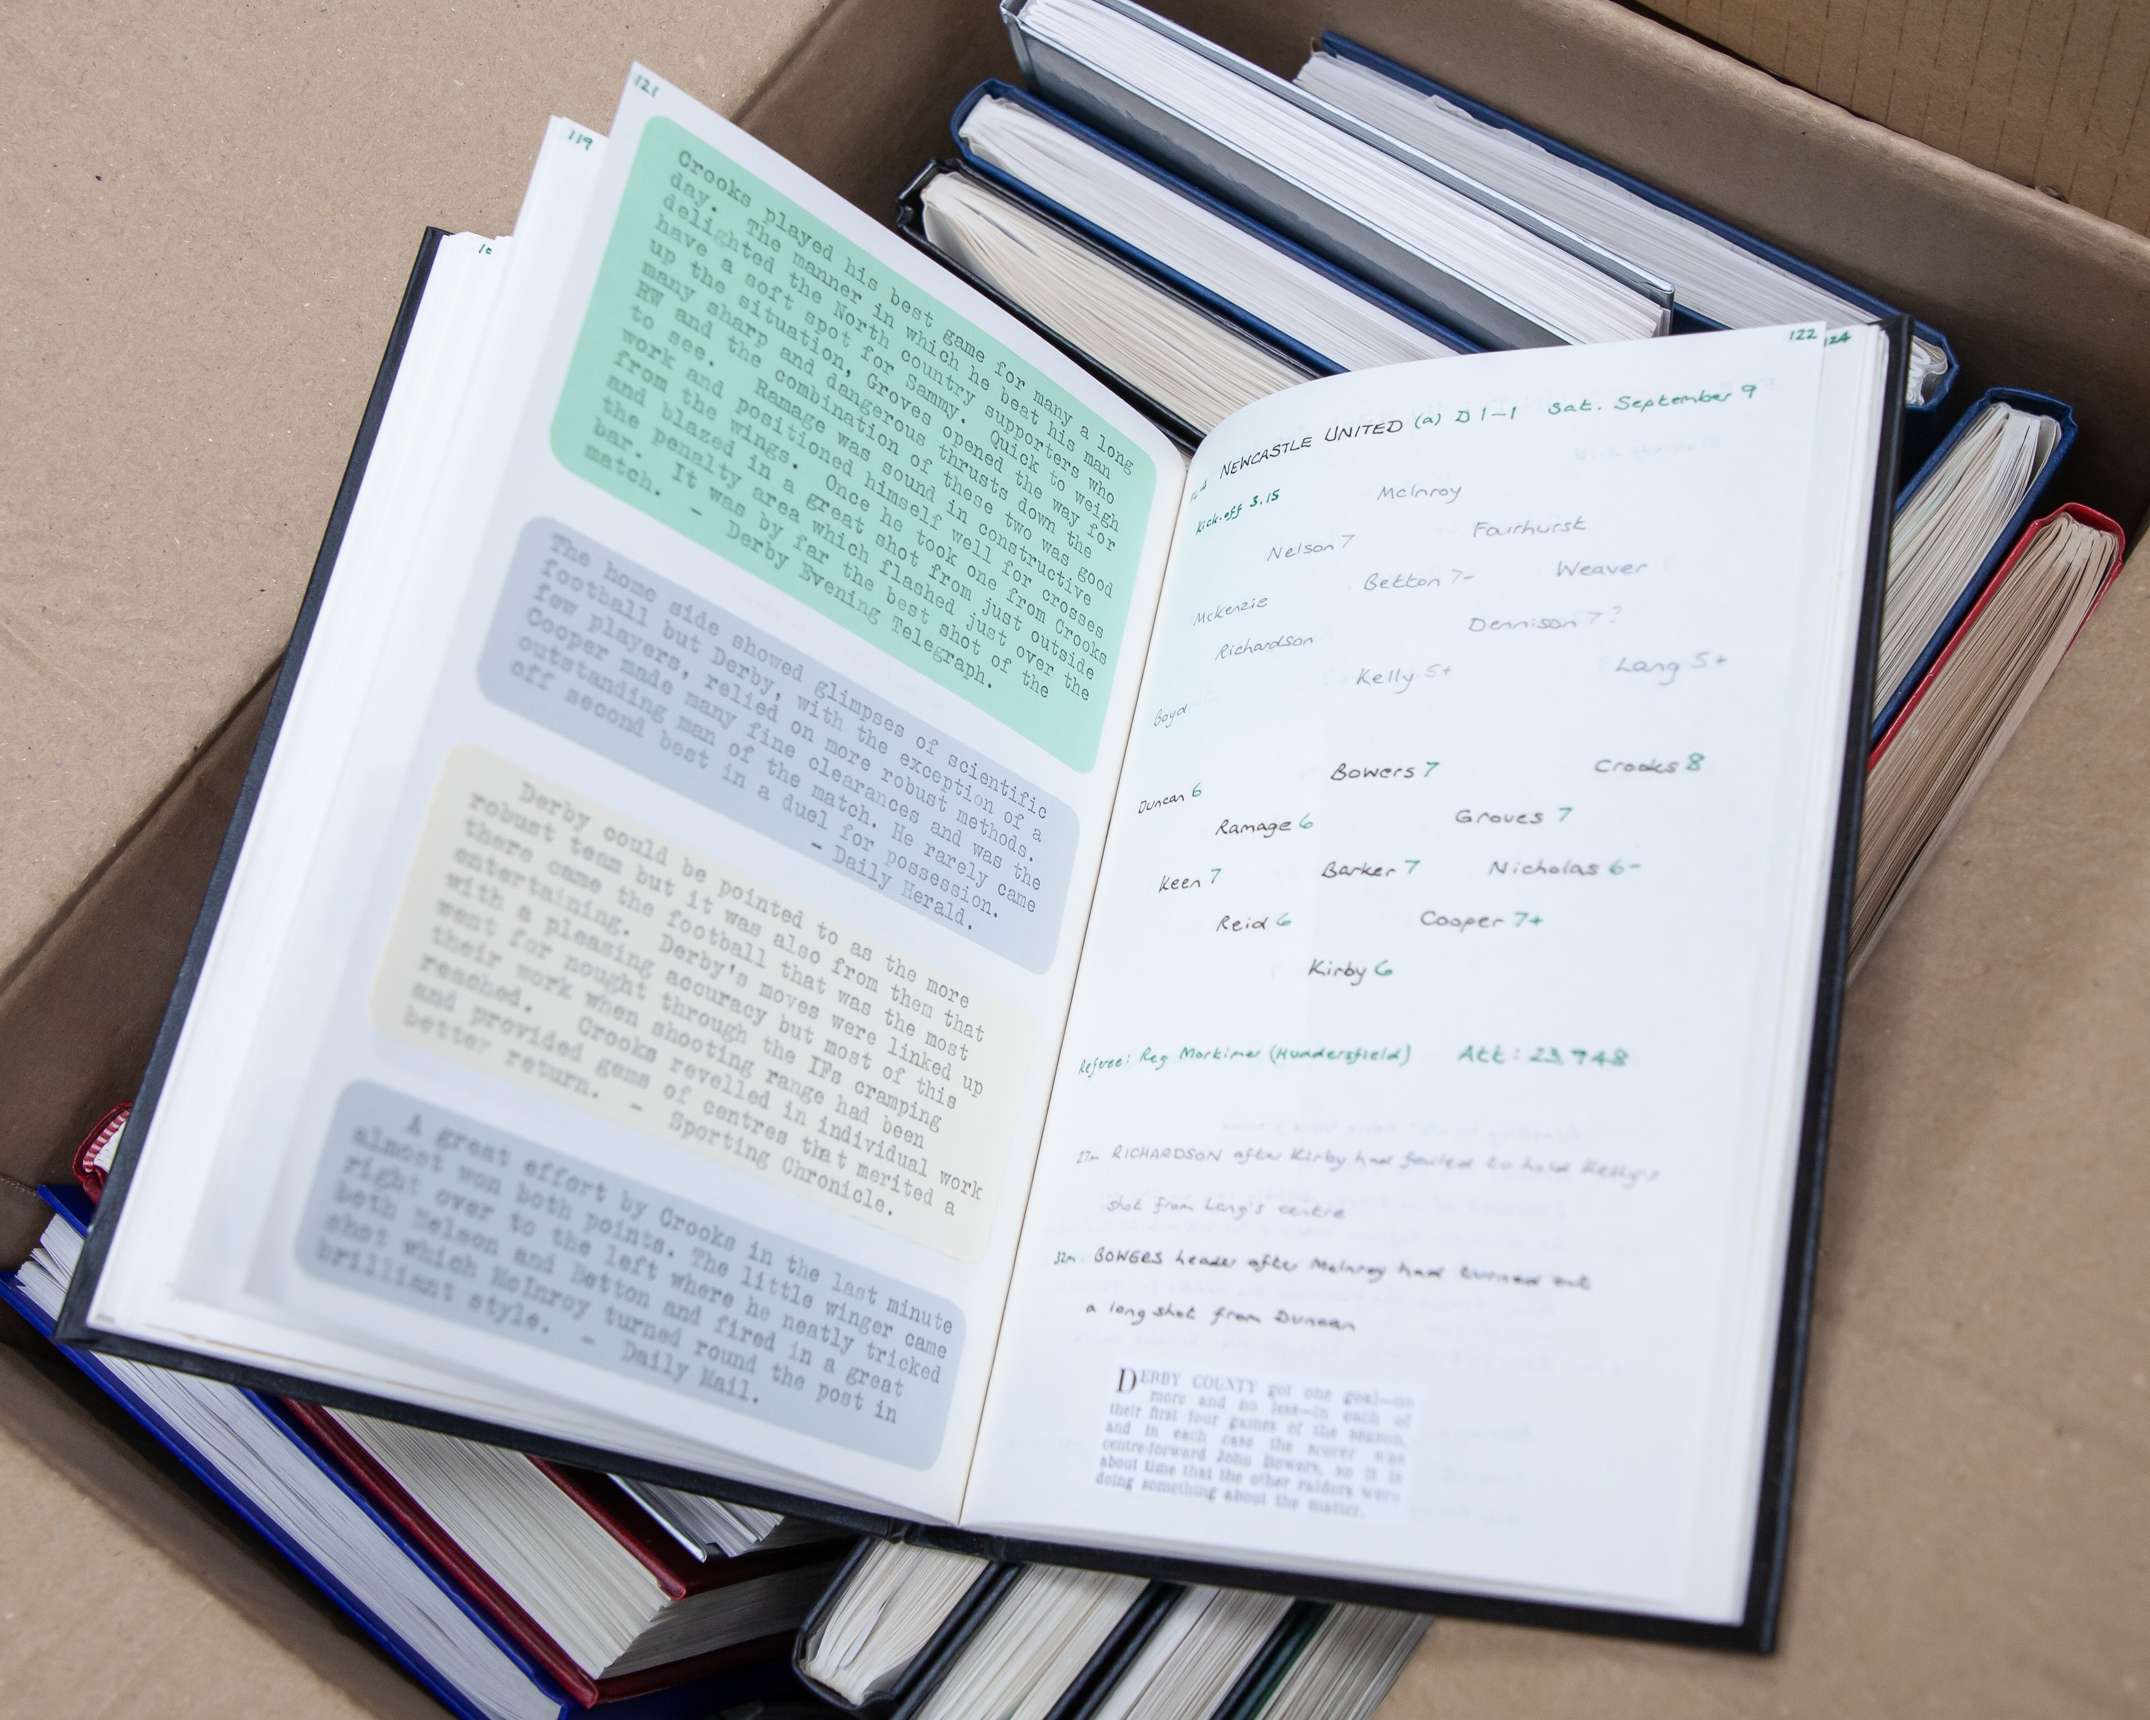 121
119
Crooks played his best game for many a long
day. The manner in which he beat his man
delighted the North country supporters who
have a soft spot for Sammy. Quick to weigh
up the situation, Groves opened the way for
many sharp and dangerous thrusts down the
RW and the combination of these two was good
to see. Ramage was sound in constructive
work and positioned himself well for crosses
from the wings. Once he took one from Crooks
and blazed in a great shot from just outside
the penalty area which flashed just over the
bar. It was by far the best shot of the
match. - Derby Evening Telegraph.
The home side showed glimpses of scientific
football but Derby, with the exception of a
few players, relied on more robust methods.
Cooper made many fine clearances and was the
outstanding man of the match. He rarely came
off second best in a duel for possession.
- Daily Herald.
Derby could be pointed to as the more
robust team but it was also from them that
there came the football that was the most
entertaining. Derby's moves were linked up
with a pleasing accuracy but most of this
went for nought through the IFs cramping
their work when shooting range had been
reached. Crooks revelled in individual work
and provided gems of centres that merited a
better return. - Sporting Chronicle.
A great effort by Crooks in the last minute
almost won both points. The little winger came
right over to the left where he neatly tricked
both Nelson and Betton and fired in a great
shot which McInroy turned round the post in
brilliant style. - Daily Mail.
122
124
NEWCASTLE UNITED (a) D 1-1 Sat. September 9
Kick.off 3.15
McInroy
Nelson 7 Fairhurst
McKenzie Betton 7- Weaver
Richardson Dennison 7?
Boyd Kelly 5+ Lang 5+
Duncan 6 Bowers 7 Crooks 8
Ramage 6 Groves 7
Keen 7 Barker 7 Nicholas 6-
Reid 6 Cooper 7+
Kirby 6
Referee: Reg Mortimer (Huddersfield) Att: 23,948
27m RICHARDSON after Kirby had failed to hold Kelly's
shot from Lang's centre
32m BOWERS header after McInroy had turned out
a long shot from Duncan
DERBY COUNTY got one goal—no
more and no less—in each of
their first four games of the season,
and in each case the scorer was
centre-forward John Bowers, so it is
about time that the other raiders were
doing something about the matter.